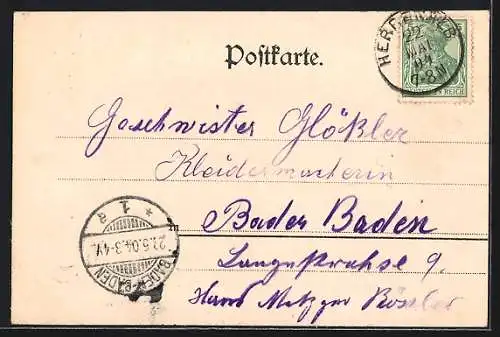 Postkarte.
HERRENALB
22
MAI
04
7-8 N
REICH
Geschwister Glößler
Kleidermacherin
Baden Baden
Langestrahse 9.
Haus Metzger Rösler
* 1 a
22.5.04.3-4V.
BADEN-BADEN